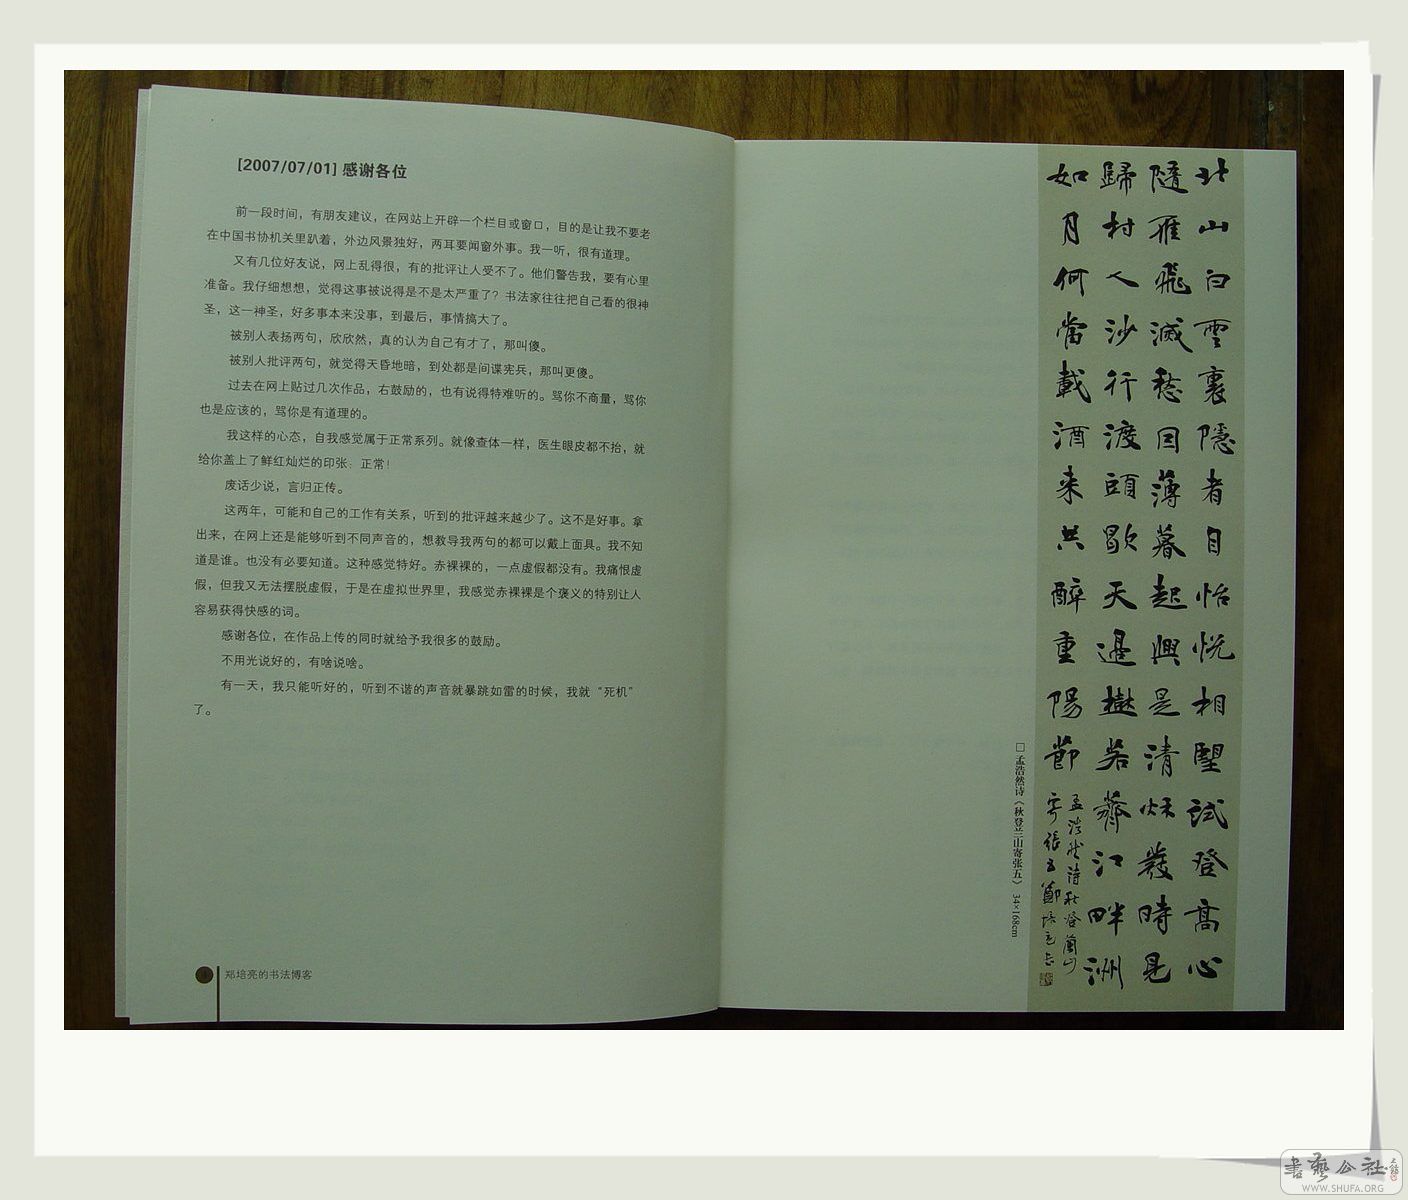 [2007/07/01] 感谢各位
前一段时间，有朋友建议，在网站上开辟一个栏目或窗口，目的是让我不要老
在中国书协机关里趴着，外边风景独好，两耳要闻窗外事。我一听，很有道理。
又有几位好友说，网上乱得很，有的批评让人受不了。他们警告我，要有心里
准备。我仔细想想，觉得这事被说得是不是太严重了？书法家往往把自己看的很神
圣，这一神圣，好多事本来没事，到最后，事情搞大了。
被别人表扬两句，欣欣然，真的认为自己有才了，那叫傻。
被别人批评两句，就觉得天昏地暗，到处都是间谍宪兵，那叫更傻。
过去在网上贴过几次作品，右鼓励的，也有说得特难听的。骂你不商量，骂你
也是应该的，骂你是有道理的。
我这样的心态，自我感觉属于正常系列。就像查体一样，医生眼皮都不抬，就
给你盖上了鲜红灿烂的印张：正常！
废话少说，言归正传。
这两年，可能和自己的工作有关系，听到的批评越来越少了。这不是好事。拿
出来，在网上还是能够听到不同声音的，想教导我两句的都可以戴上面具。我不知
道是谁。也没有必要知道。这种感觉特好。赤裸裸的，一点虚假都没有。我痛恨虚
假，但我又无法摆脱虚假，于是在虚拟世界里，我感觉赤裸裸是个褒义的特别让人
容易获得快感的词。
感谢各位，在作品上传的同时就给予我很多的鼓励。
不用光说好的，有啥说啥。
有一天，我只能听好的，听到不谐的声音就暴跳如雷的时候，我就“死机”
了。
郑培亮的书法博客
北山白雲裏隱者自怡悅相望試登高心
隨雁飛滅愁因薄暮起興是清秋發時見
歸村人沙行渡頭歇天邊樹若薺江畔洲
如月何當載酒来共醉重陽節
孟浩然詩秋登蘭山
寄張五鄭培亮
□ 孟浩然诗《秋登兰山寄张五》 34×168cm
書藝公社
WWW.SHUFA.ORG